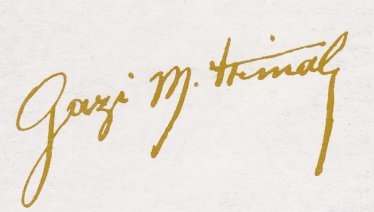 Gazi M. Kemal